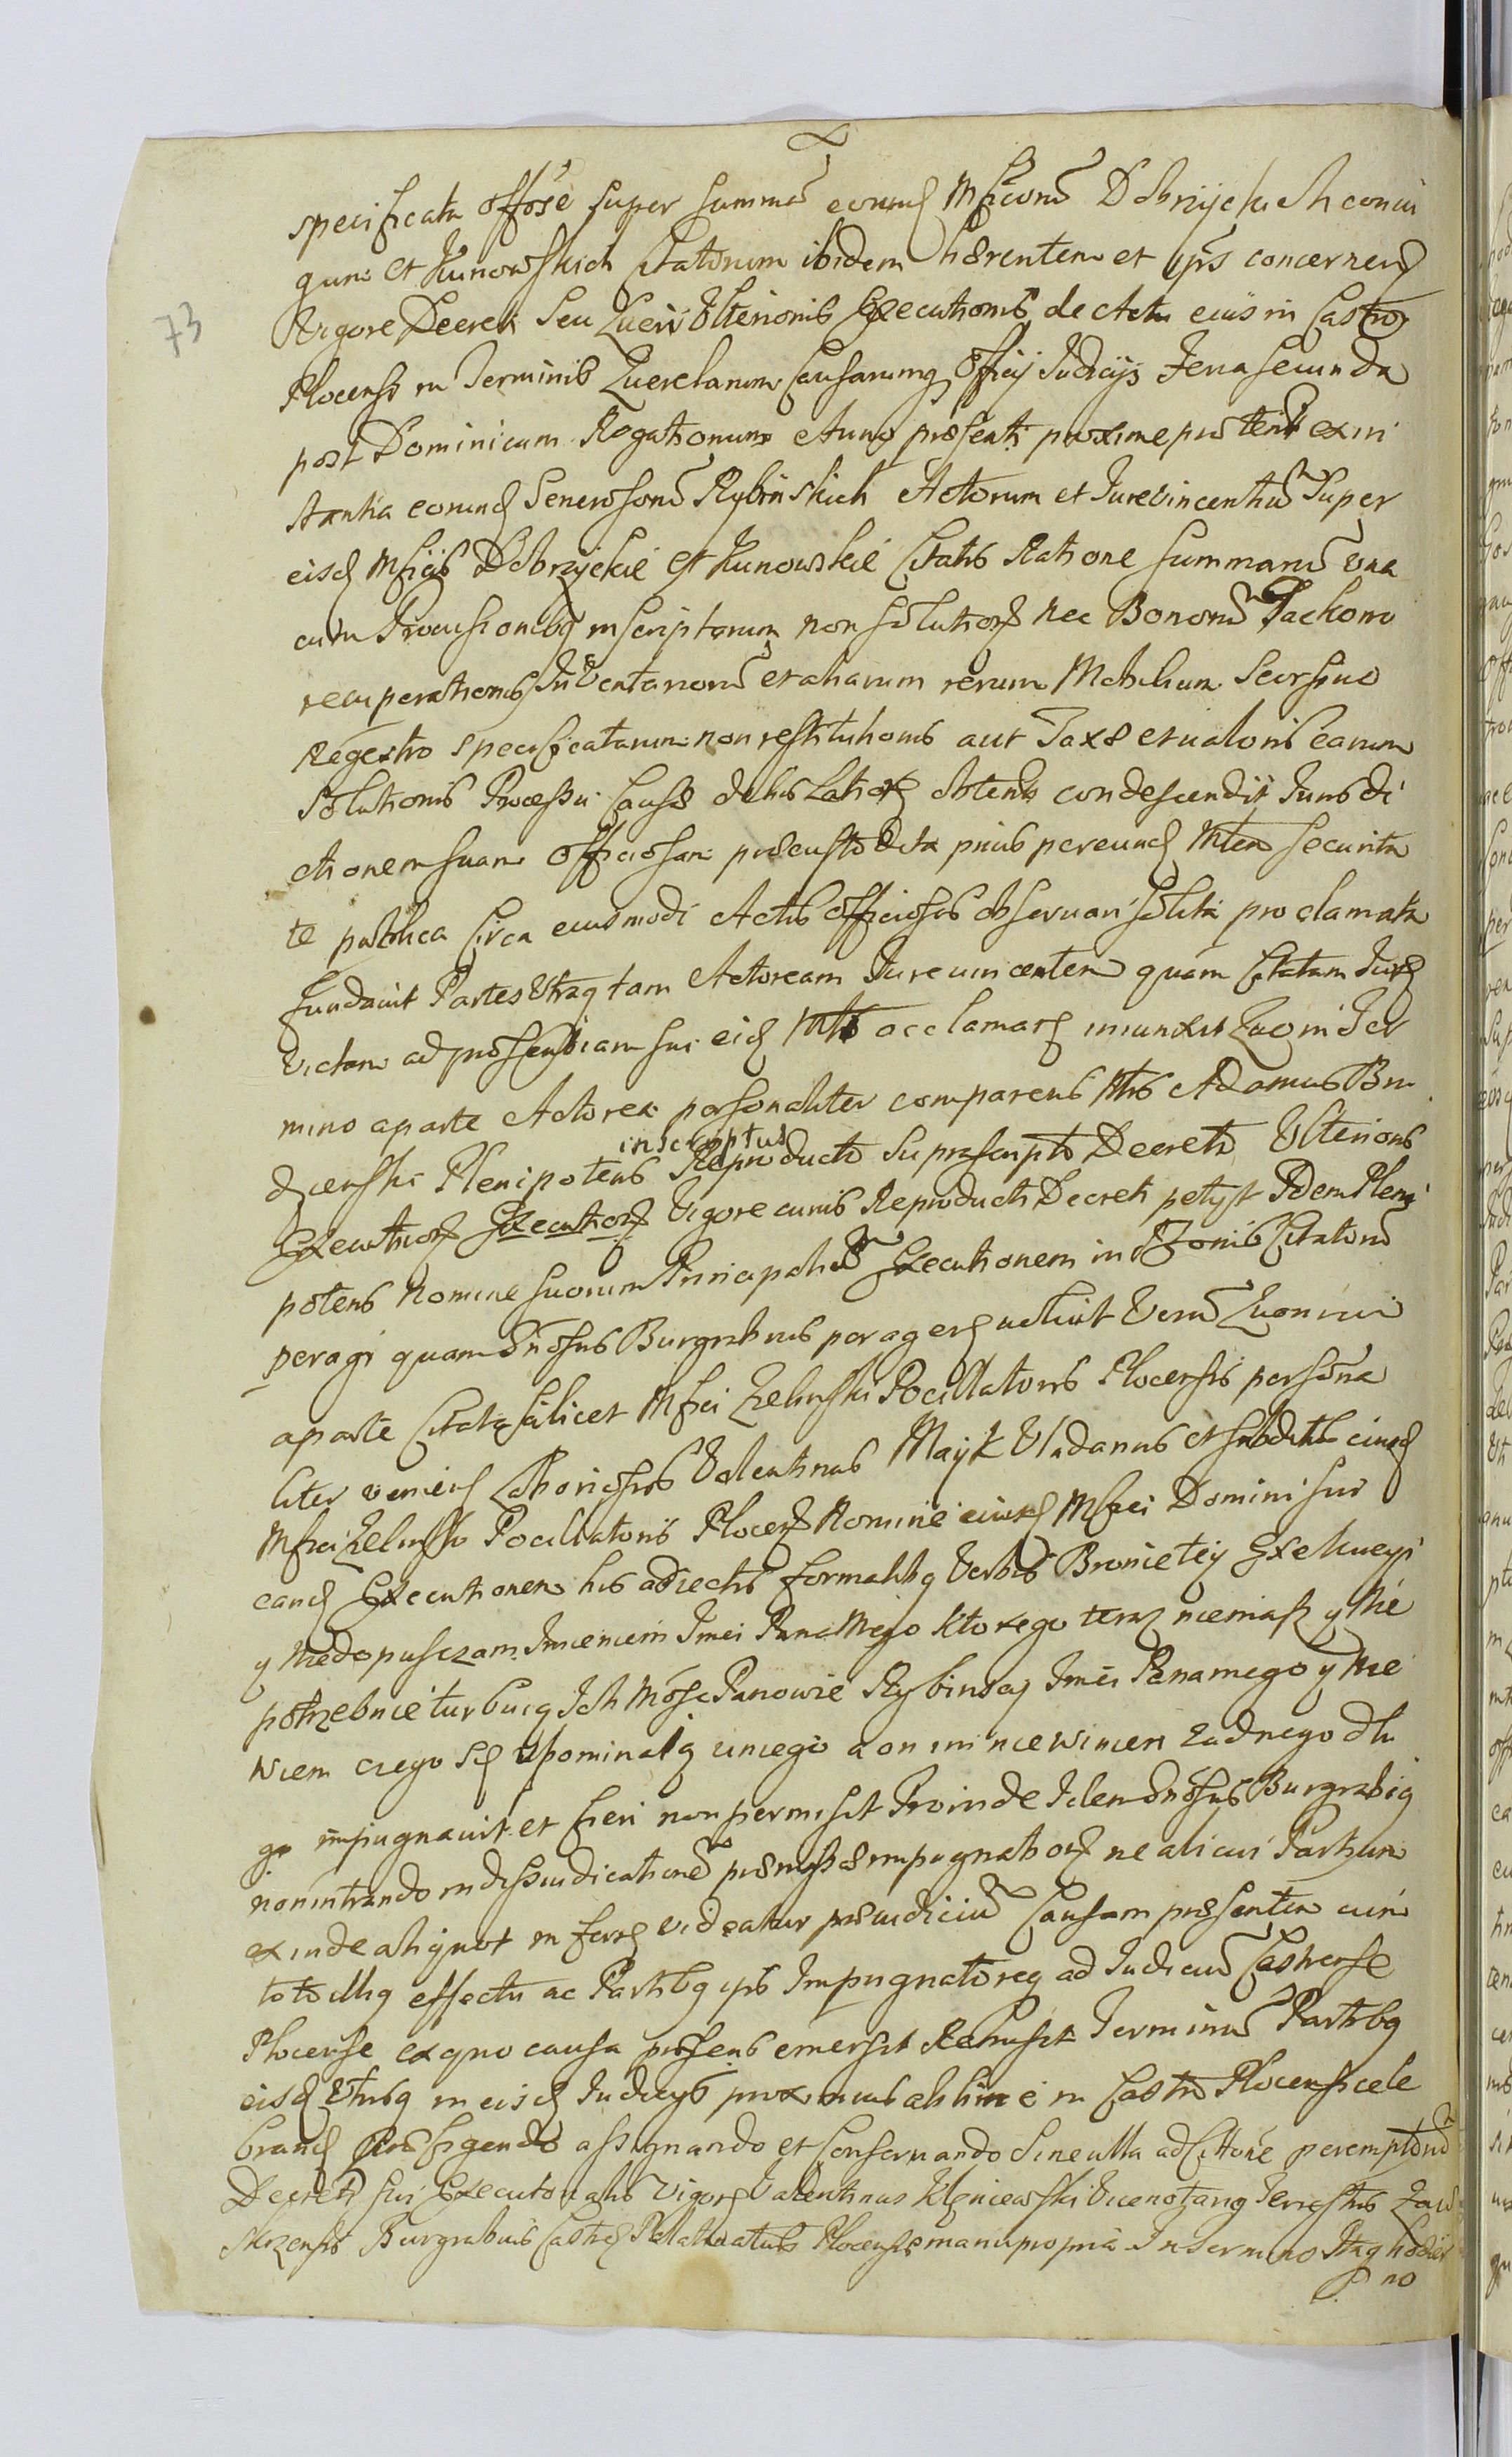 specificata offose super summa eorund Mficorū Dobrzyckich coniu
gum et Kunowskich Citatorum ibidem hærentem et ipss concernen
Vigore Decreti Seu Lucri Ulterionis Executionis de Actu eius in Castro
Plocensi in Terminis Querelarum Causarumq Officij Judicijs Feria Secunda
post Dominicam Rogationum Anno præsenti proxime præterit ex in
stantia eorund Generosorū Rybinskich Actorum et Jurevincentiū Super
eisd Mficis Dobrzyckie et Kunowskie Citatis Ratione Summarū una
cum Provisionibq inscriptarum non Solutiors nec Bonorū Packowo
recuperationis Inventariorū et aliarum rerum Mobilium Seorsivo
Regestro Specificatarum non restitutionis aut Taxæ et valoris earum
Solutionis Processu Causæ de his Lator obtent condescendit Jurisdi
ctionem suam Officiosam præcustodita prius pereund Mten Securita
te publica Circa eiusmodi Actus Officiosos observari Solita proclamata
fundavit Partes Utrasq tam Actoream Jurevincentem quam Citatam Jure
Victam ad præsentiam sui eid Mtis acclamar iniunxit Quo in Ter
mino a parte Actorea personaliter comparens Mtis Adamus Bu
dzienski Plenipotens inscriptus Reproducto Suprascripto Decreto Ulterions
Executiors Executiors Vigore cuius Reproducti Decreti petyt Idem Pleni
potens Nomine suorum Principaliū Executionem in Bonis Citatorū
peragi quam Gnosus Burgrabius peragere voluit Verū Quoniam
a parte Citata scilicet Mfici Zelinski Pocillatoris Plocensis persona
liter veniens Laboriosus Valentinus Mayk Vladarius et subditus eiusd
Mfici Zelinski Pocillatoris Plocens Nomine eiusd Mfici Domini sui
eand Executionem his adiectis formalibq Verbis Bronie tey Exekucyi
y Niedopuszczam Imieniem Imci Pana Mego ktorego teraz niemasz y Nie
potrzebnie turbuią Ich Mosc Panowie Rybinscy Imci Pana mego y Nie
wiem czego się upominaią uniego a on im niewinien żadnego dlu
go impugnavit et fieri non permisit Proinde Idem Gnosus Burgrabiq
non intrando in dijudicationē præmissæ impugnatiors ne alicui Partium
exinde aliquot inferre videatur præiudiciū Causam præsentem cum
toto illiq effectu ac Partibq ipis Impugnatoreq ad Judiciū Castrense
Plocense ex quo causa præsens emersit Remisit Terminū Partibq
eisd Utrisq in eisd Judicijs proximis abhinc in Castro Plocensi cele
brand Præfigendo assignando et Conservando Sine ulla adcitatione peremptoriū
Decreti sui Executorialis Vigore Valentinus Klęniewski Vicenotariq Terrestris Zaw
skrzensis Burgrabius Castren Palatinatus Plocensis manu propria In Termino Itaq hodier
no
73